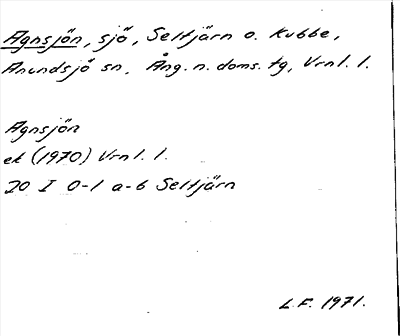 Agnsjön, sjö, Seltjärn o. Kubbe,
Anundsjö sn, Ång. n. doms. tg, Vrnl. l.
Agnsjön
ek (1970) Vrnl. l.
20 I 0-1 a-b Seltjärn
L.F. 1971.